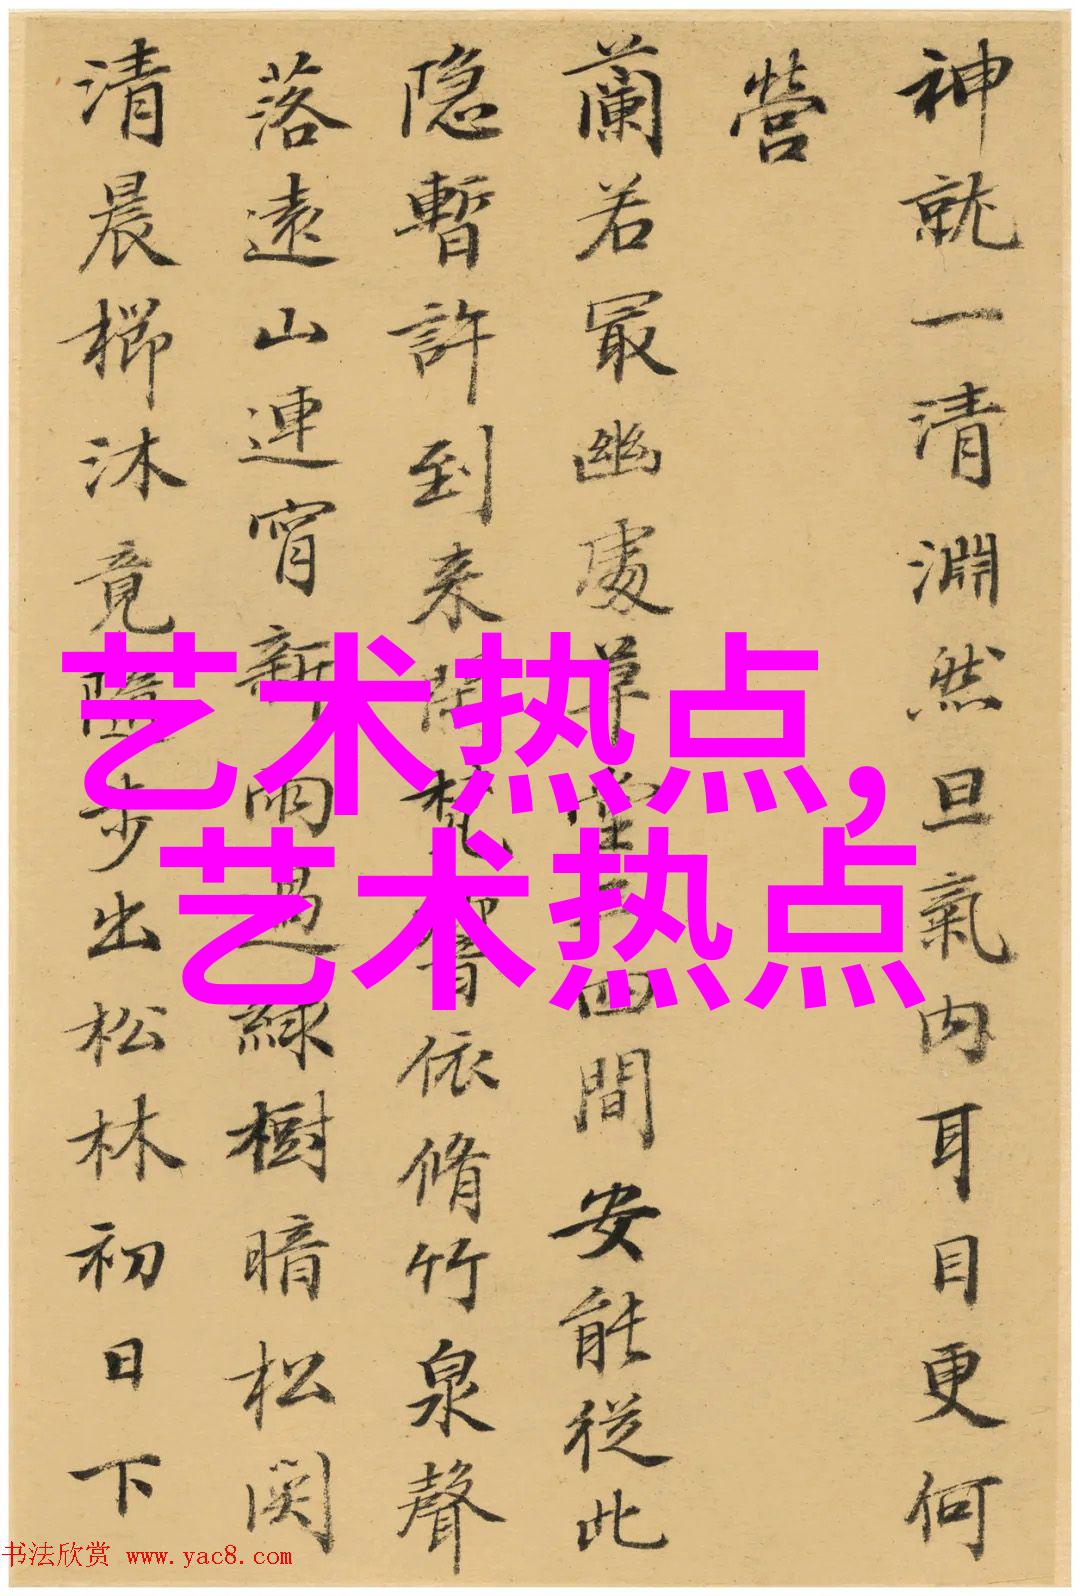 神就一清淵然旦氣内耳目更何
營
蘭若冣幽處草堂三四間安能従此
隐暫許到来閑梵響依脩竹泉聲
落遠山連宵新雨過緑樹暗松関
清晨櫛沐竟随步出松林初日下
艺术热点,
艺术热点
书法欣赏 www.yac8.com